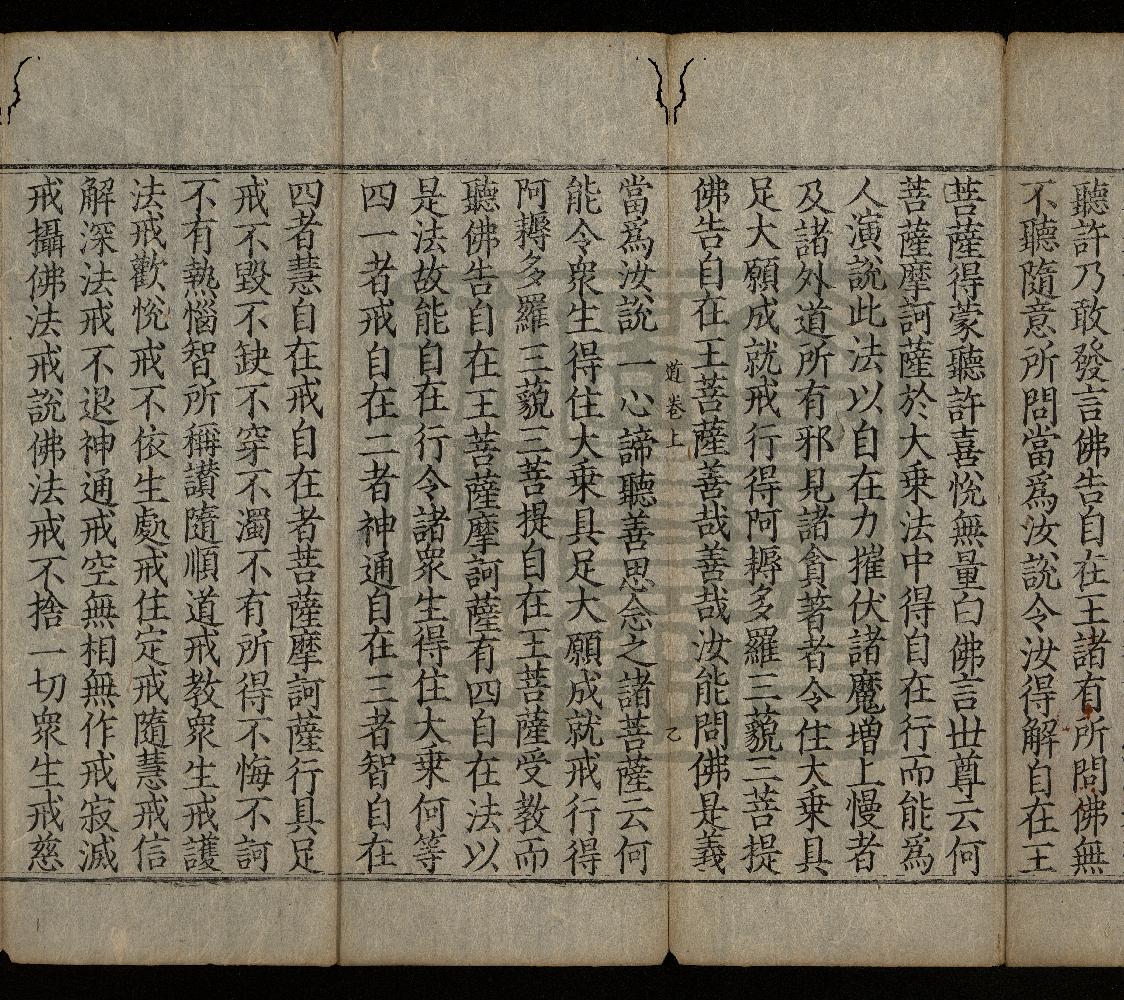 聽許乃敢發言佛告自在王諸有所問佛無
不聽隨意所問當爲汝說令汝得解自在王
菩薩得蒙聽許喜悅無量白佛言世尊云何
菩薩摩訶薩於大乘法中得自在行而能爲
人演說此法以自在力摧伏諸魔增上慢者
及諸外道所有邪見諸貪著者令住大乘具
足大願成就戒行得阿耨多羅三藐三菩提
佛告自在王菩薩善哉善哉汝能問佛是義
道卷上 乙
當爲汝說一心諦聽善思念之諸菩薩云何
能令衆生得住大乘具足大願成就戒行得
阿耨多羅三藐三菩提自在王菩薩受教而
聽佛告自在王菩薩摩訶薩有四自在法以
是法故能自在行令諸衆生得住大乘何等
四一者戒自在二者神通自在三者智自在
四者慧自在戒自在者菩薩摩訶薩行具足
戒不毀不缺不穿不濁不有所得不悔不訶
不有熱惱智所稱讚隨順道戒教衆生戒護
法戒歡悅戒不依生處戒住定戒隨慧戒信
解深法戒不退神通戒空無相無作戒寂滅
戒攝佛法戒說佛法戒不捨一切衆生戒慈